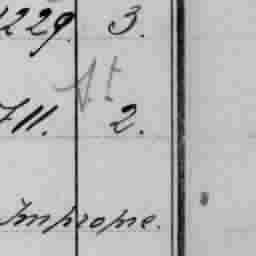 1229. 3.
St
711. 2.
Imprope.